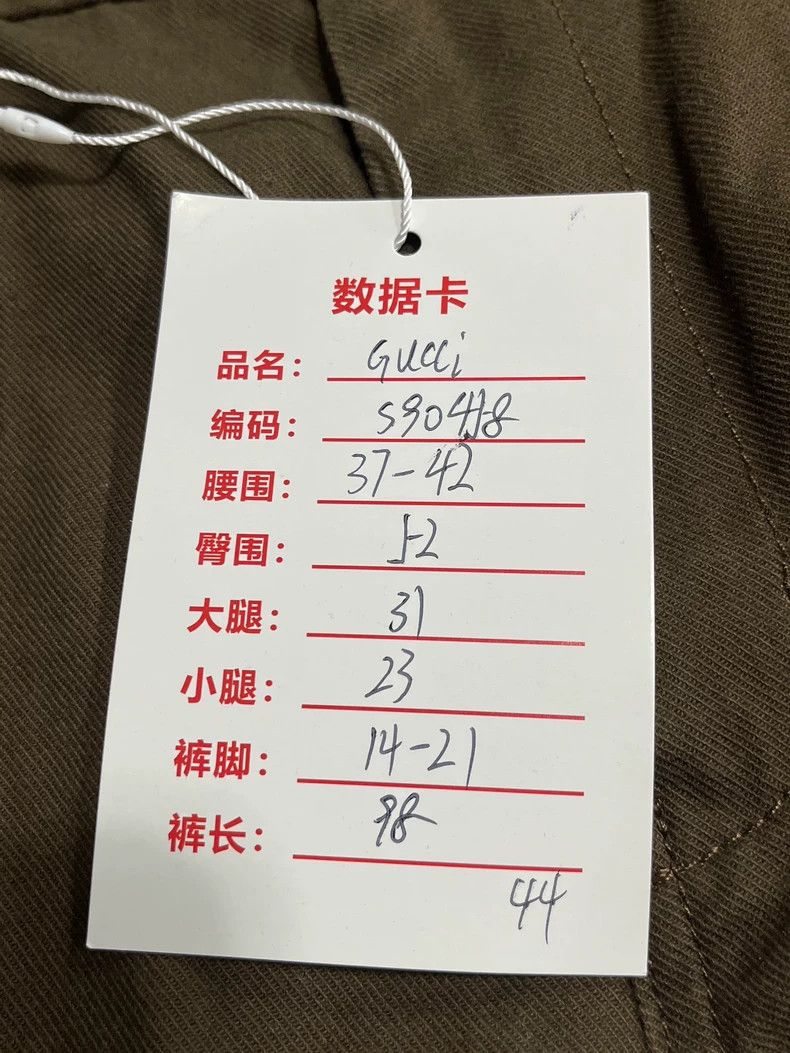 数据卡
品名: Gucci
编码: S90418
腰围: 37-42
臀围: 52
大腿: 31
小腿: 23
裤脚: 14-21
裤长: 98
44